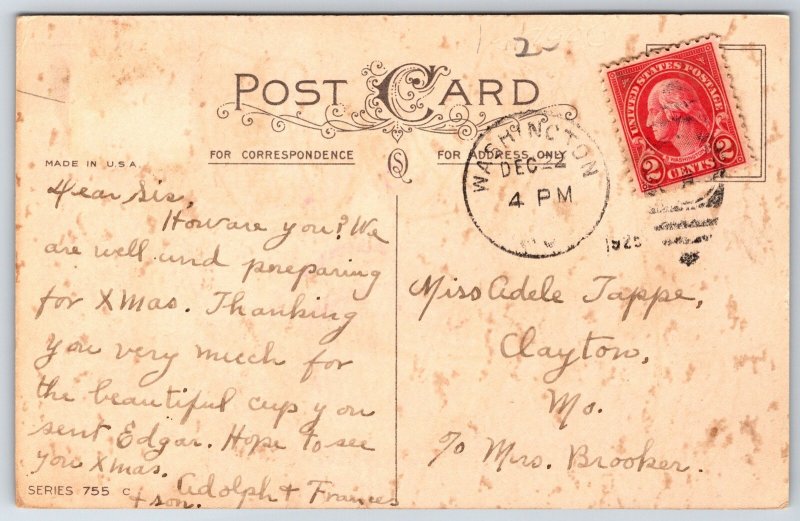 POST CARD
FOR CORRESPONDENCE
FOR ADDRESS ONLY
MADE IN U.S.A.
UNITED STATES POSTAGE
2 CENTS 2
WASHINGTON
DEC 22
4 PM
MO
1925
Dear Sis,
How are you? We
are well und preparing
for XMas. Thanking
you very much for
the beautiful cup you
sent Edgar. Hope to see
you Xmas.
Adolph + Frances
+ son.
Miss Adele Tappe,
Clayton,
Mo.
℅ Mrs. Brooker.
SERIES 755 C